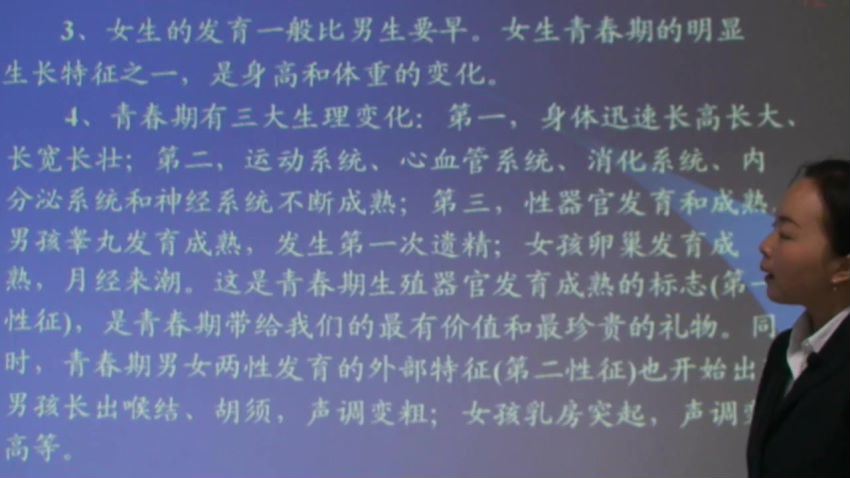 3、女生的发育一般比男生要早。女生青春期的明显
生长特征之一，是身高和体重的变化。
4、青春期有三大生理变化：第一，身体迅速长高长大、
长宽长壮；第二，运动系统、心血管系统、消化系统、内
分泌系统和神经系统不断成熟；第三，性器官发育和成熟，
男孩睾丸发育成熟，发生第一次遗精；女孩卵巢发育成
熟，月经来潮。这是青春期生殖器官发育成熟的标志(第一
性征)，是青春期带给我们的最有价值和最珍贵的礼物。同
时，青春期男女两性发育的外部特征(第二性征)也开始出
男孩长出喉结、胡须，声调变粗；女孩乳房突起，声调变
高等。